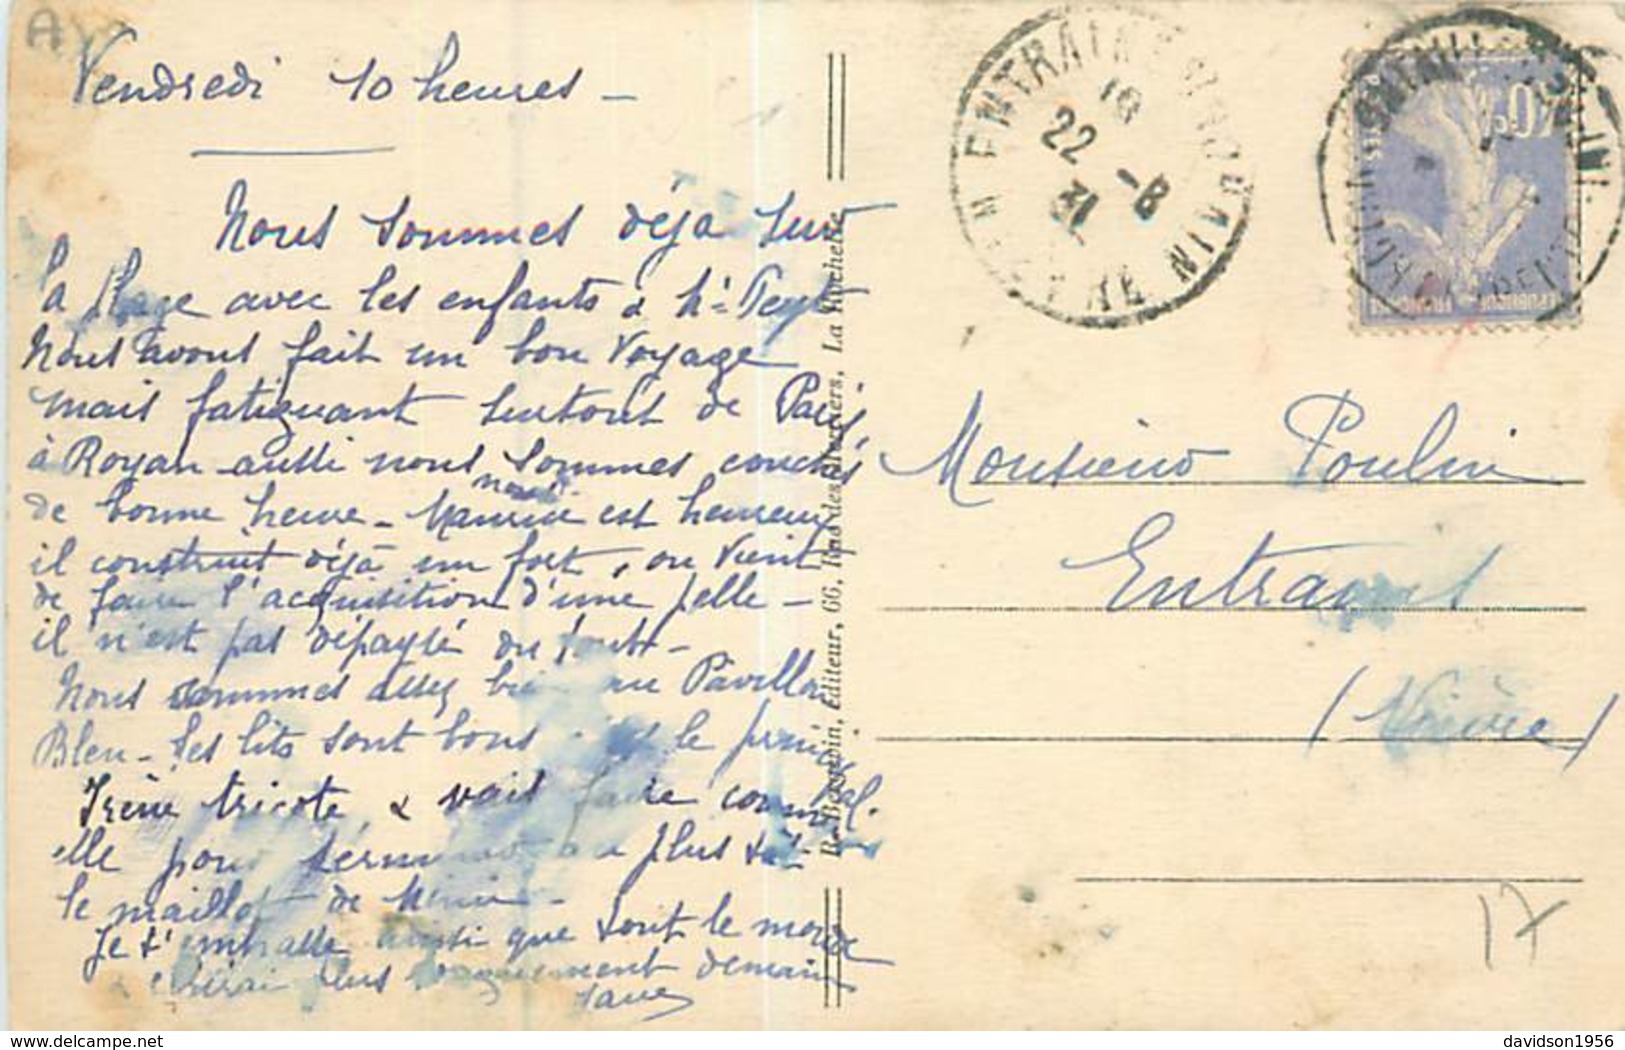 Vendredi 10 heures -
Nous sommes déja sur
la plage avec les enfants &
Nous avons fait un bon voyage
mais fatiguant surtout de Paris
à Royan aussi nous sommes couchés
de bonne heure - Maurice est heureux
il construit déjà un fort, on vient
de faire l'acquisition d'une pelle -
il n'est pas dépaysé du tout -
Nous sommes assez bien au Pavillon
Bleu - les lits sont bons le
Irène tricote & vait faire
elle pour terminer au plus tôt
le maillot de
Je t'embrasse ainsi que tout le monde
plus longuement demain
R. Bergevin, Éditeur, 66, Rue des Merciers, La Rochelle
22 -8
31
40c
Monsieur Poulin
Entrains
(Nièvre)
17
davidson1956